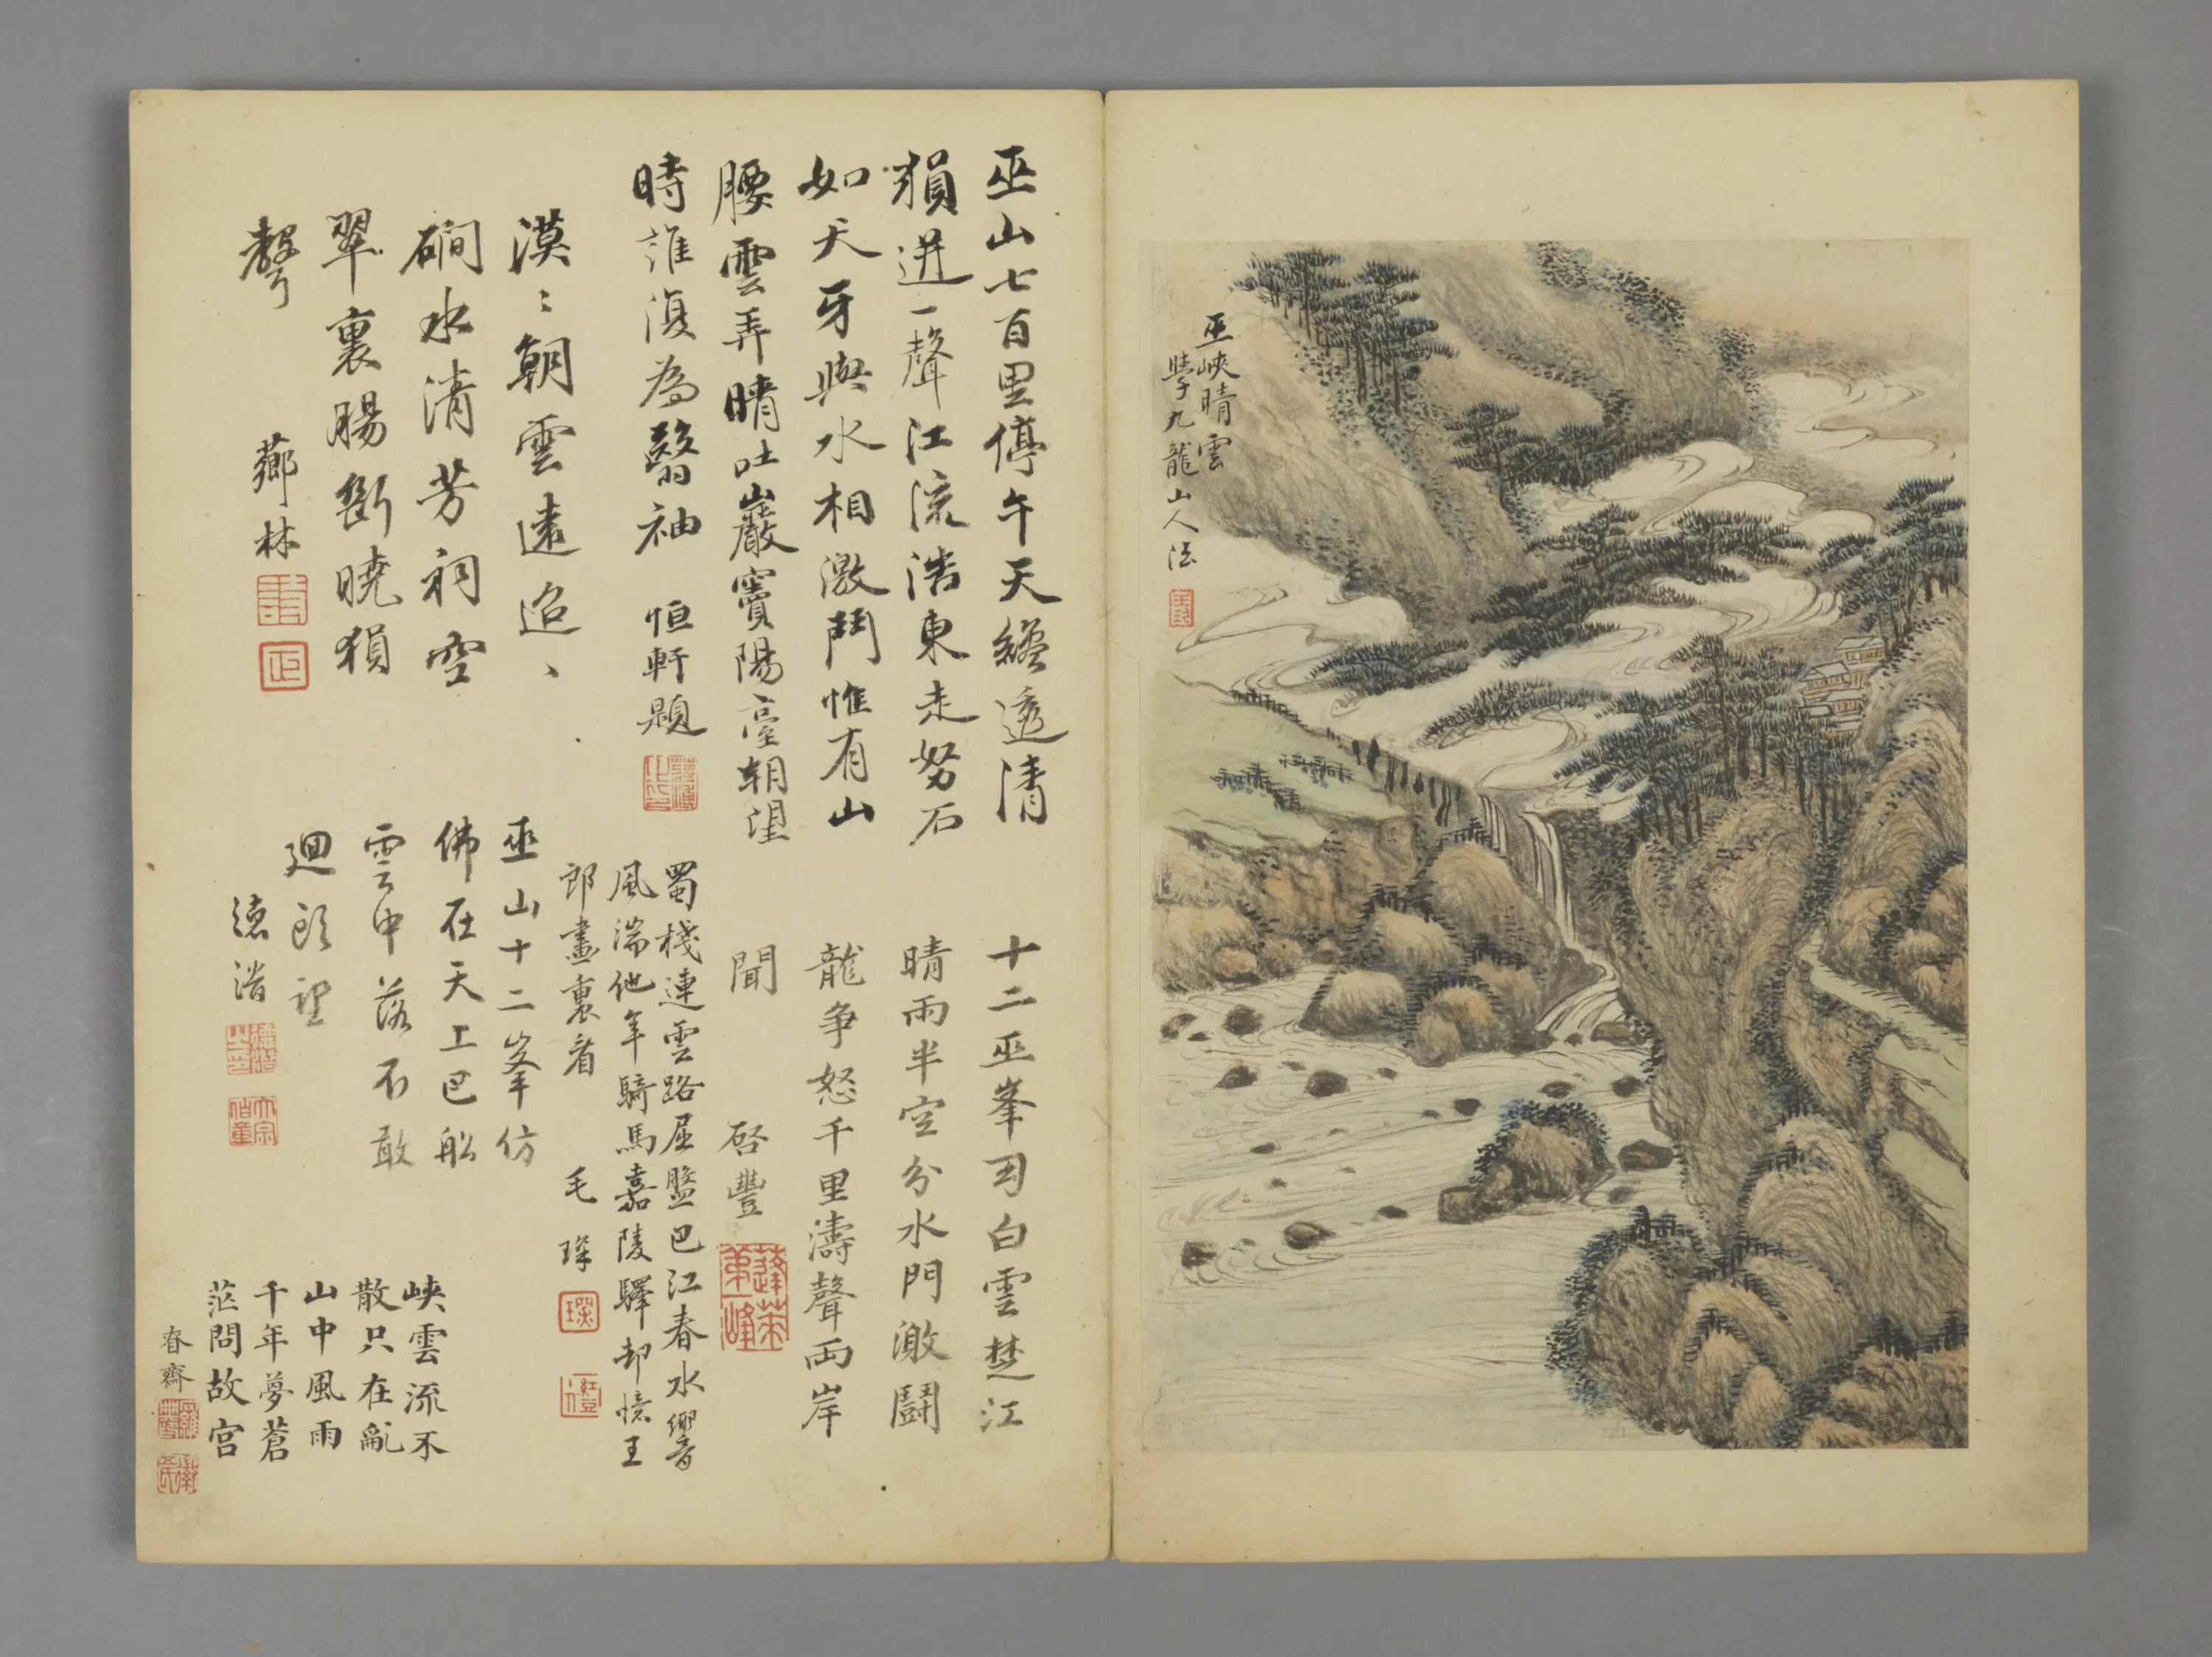 巫峽晴雲
學九龍山人法
巫山七百里停午天纔透清
猿迸一聲江流浩東走怒石
如天牙與水相激鬥惟有山
腰雲弄晴吐巖竇陽臺朝望
時誰復為翳袖
恒軒題
漠〻朝雲遠迢〻
磵水清芳祠空
翠裏腸斷曉猿
聲
薌林
十二巫峯司白雲楚江
晴雨半空分水門激鬪
龍爭怒千里濤聲兩岸
聞
啓豐
蓬萊
第一峰
蜀棧連雲路屈盤巴江春水響
風湍他年騎馬嘉陵驛却憶王
郎畫裏看
毛琛
琛
巫山十二峯仿
佛在天上巴船
雲中落不敢
迴頭望
德潛
峽雲流不
散只在亂
山中風雨
千年夢蒼
茫問故宮
春齋